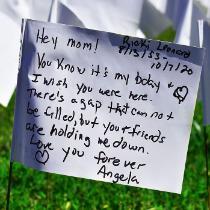 Hey mom! Ricki Leonard
8/15/53 -
10/7/20
You Know it's my bday
I wish you were here.
There's a gap that can not
be filled, but your friends
are holding me down.
Love you forever
Angela